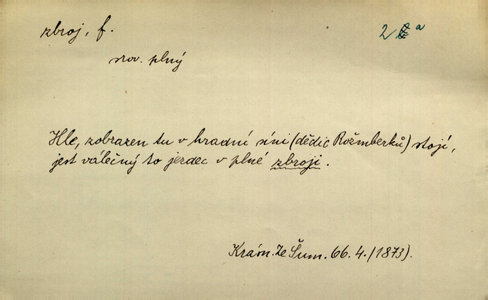 zbroj, f.
srov. plný
Hle, zobrazen tu v hradní síni (dědic Rožmberků) stojí,
jest válečný to jezdec v plné zbroji.
Krám. Ze Šum. 66. 4. (1873).